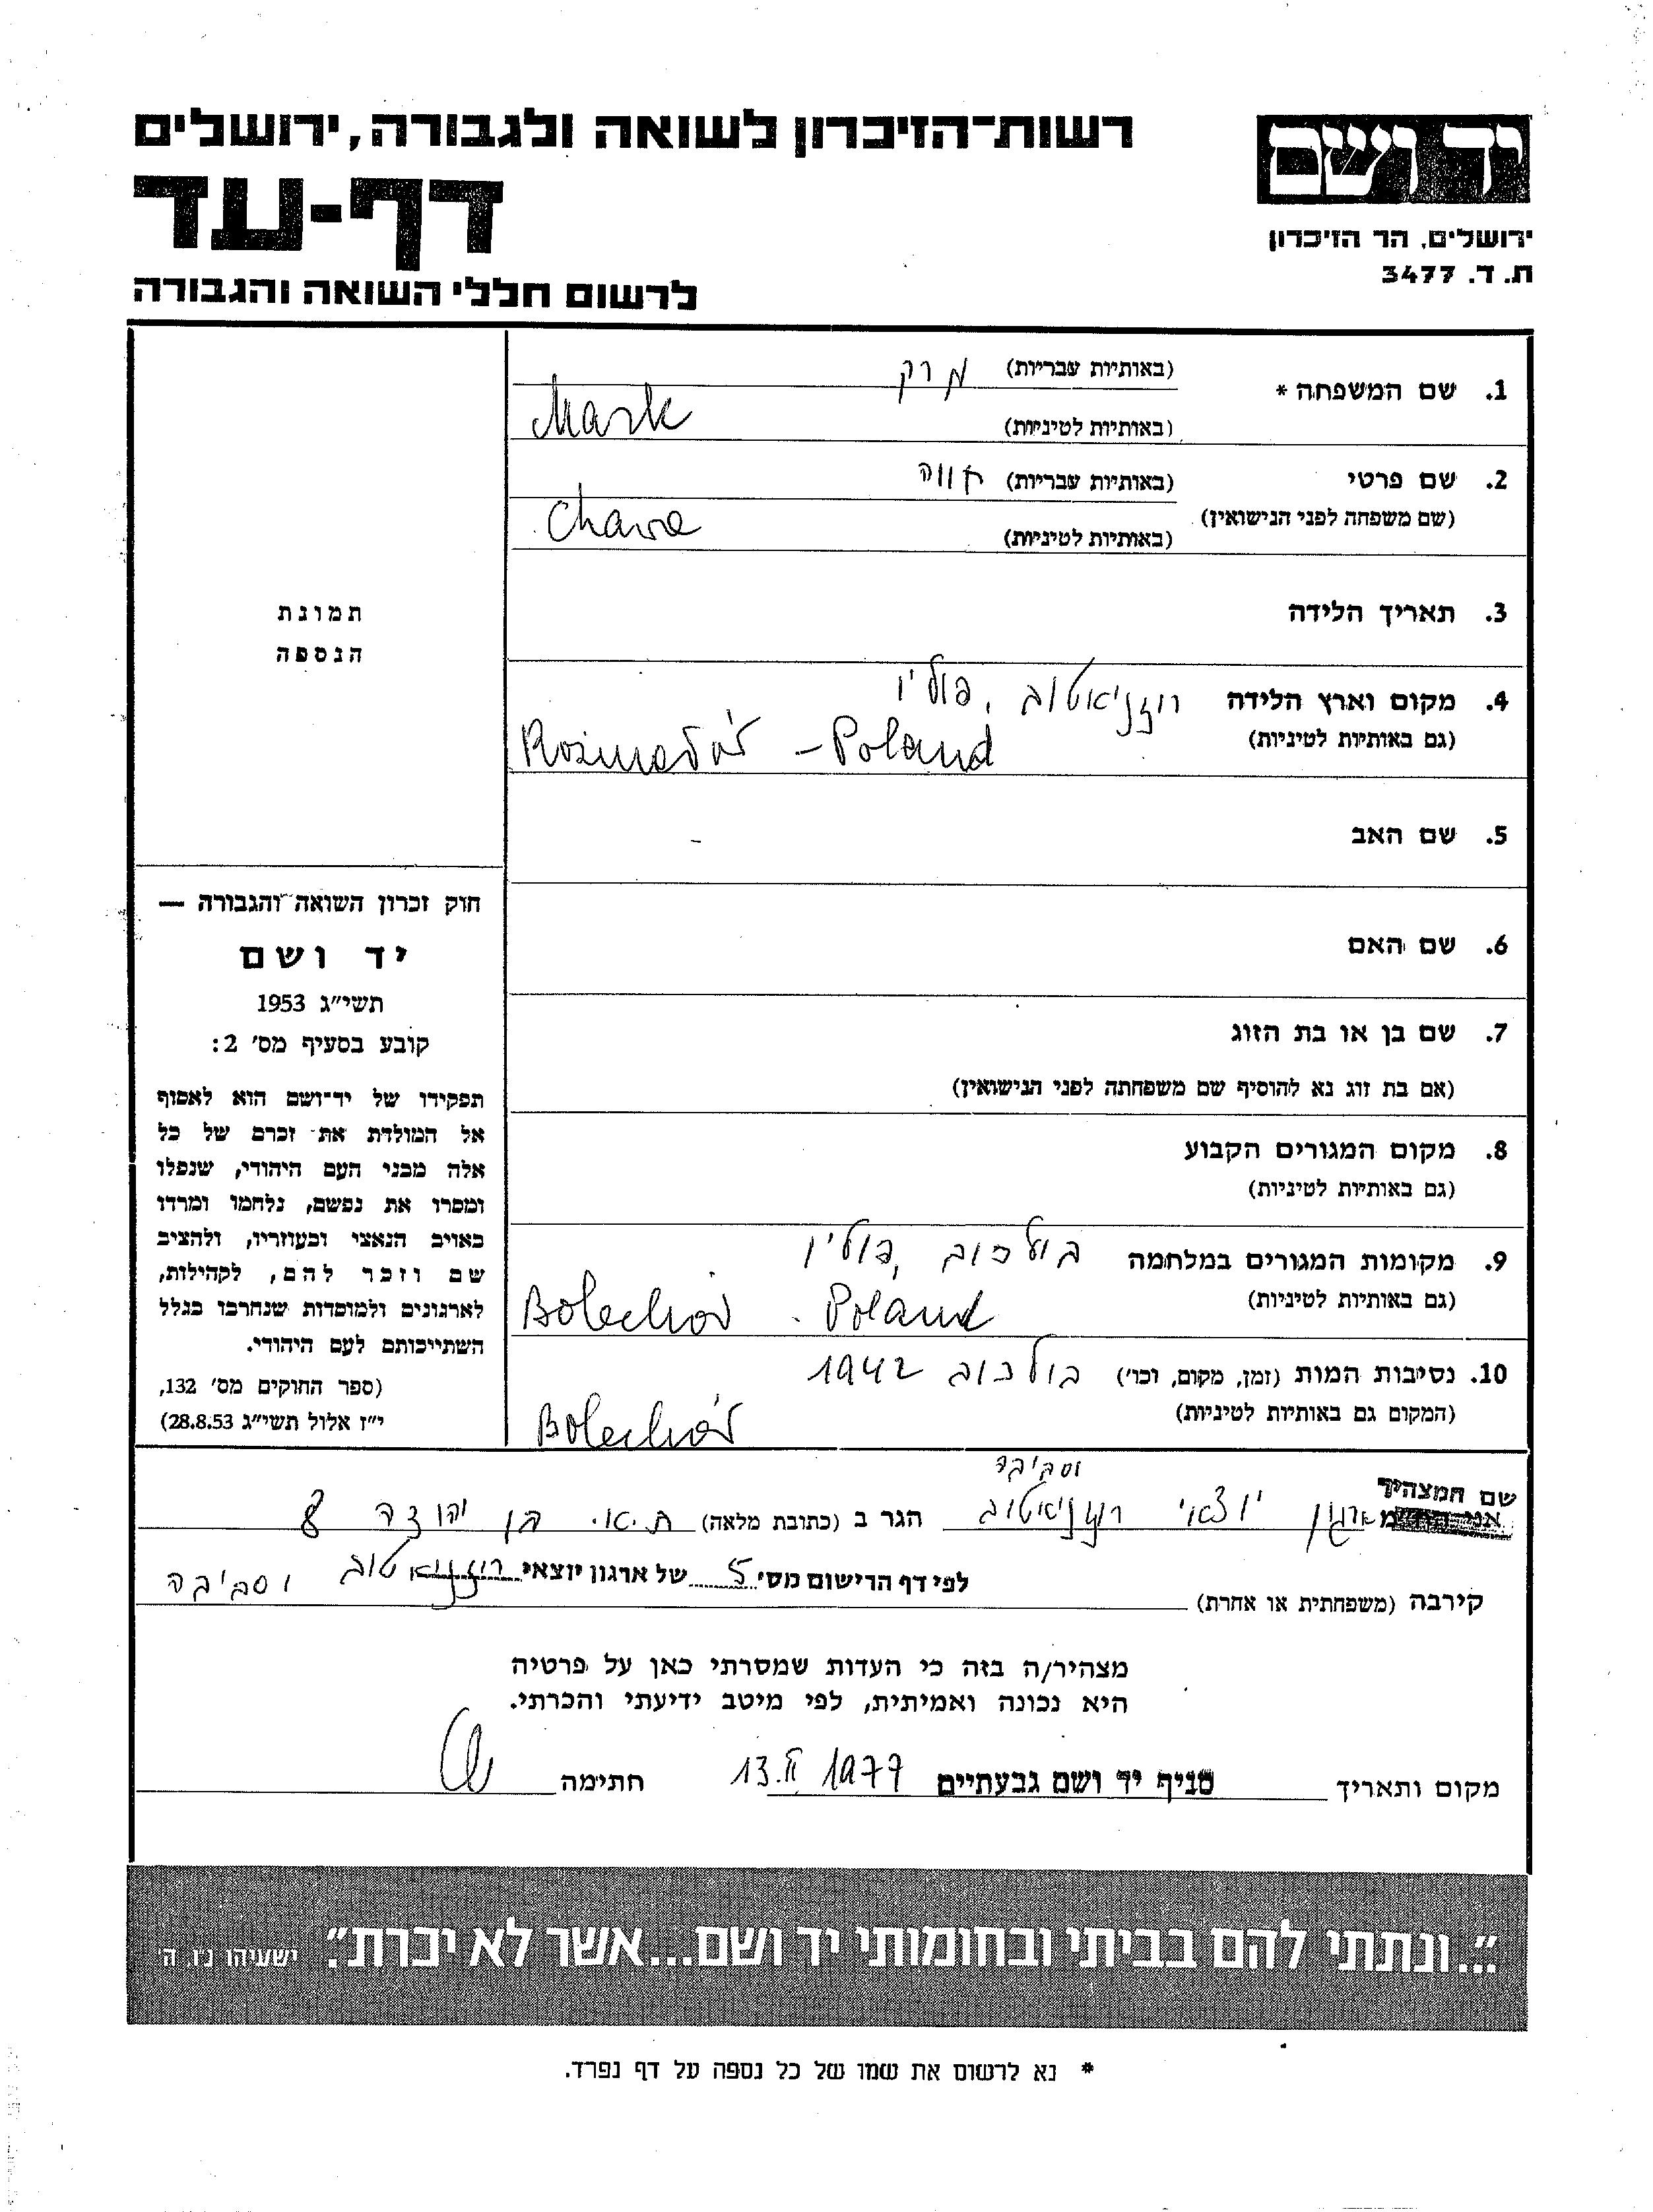 רשות־הזיכרון לשואה ולגבורה, ירושלים
דף-עד
לרשום חללי השואה והגבורה
יד ושם
ירושלים, הר הזיכרון
ת.ד. 3477
1. שם המשפחה * (באותיות עבריות) מרק
(באותיות לטיניות) Mark
2. שם פרטי (באותיות עבריות) חווה
(שם משפחה לפני הנישואין)
(באותיות לטיניות) Chawa
3. תאריך הלידה
4. מקום וארץ הלידה רוזניאטוב, פולין
(גם באותיות לטיניות) – Poland
5. שם האב –
6. שם האם
7. שם בן או בת הזוג
(אם בת זוג נא להוסיף שם משפחתה לפני הנישואין)
8. מקום המגורים הקבוע
(גם באותיות לטיניות)
9. מקומות המגורים במלחמה בולכוב, פולין
(גם באותיות לטיניות) Bolechów - Poland
10. נסיבות המות (זמן, מקום, וכו') בולכוב 1942
(המקום גם באותיות לטיניות) Bolechów
תמונת
הנספה
חוק זכרון השואה והגבורה —
יד ושם
תשי"ג 1953
קובע בסעיף מס' 2:
תפקידו של יד־ושם הוא לאסוף
אל המולדת את זכרם של כל
אלה מבני העם היהודי, שנפלו
ומסרו את נפשם, נלחמו ומרדו
באויב הנאצי ובעוזריו, ולהציב
שם וזכר להם, לקהילות,
לארגונים ולמוסדות שנחרבו בגלל
השתייכותם לעם היהודי.
(ספר החוקים מס' 132,
י"ז אלול תשי"ג 28.8.53)
וסביבה
שם המצהיר
ארגון יוצאי רוזניאטוב הגר ב (כתובת מלאה) ת"א, בן יהודה 8
לפי דף הרישום מס' 5 של ארגון יוצאי רוזניאטוב וסביבה
קירבה (משפחתית או אחרת)
מצהיר/ה בזה כי העדות שמסרתי כאן על פרטיה
היא נכונה ואמיתית, לפי מיטב ידיעתי והכרתי.
מקום ותאריך סניף יד ושם גבעתיים 13.II 1977 חתימה
"...ונתתי להם בביתי ובחומותי יד ושם...אשר לא יכרת". ישעיהו נ"ו, ה'
* נא לרשום את שמו של כל נספה על דף נפרד.